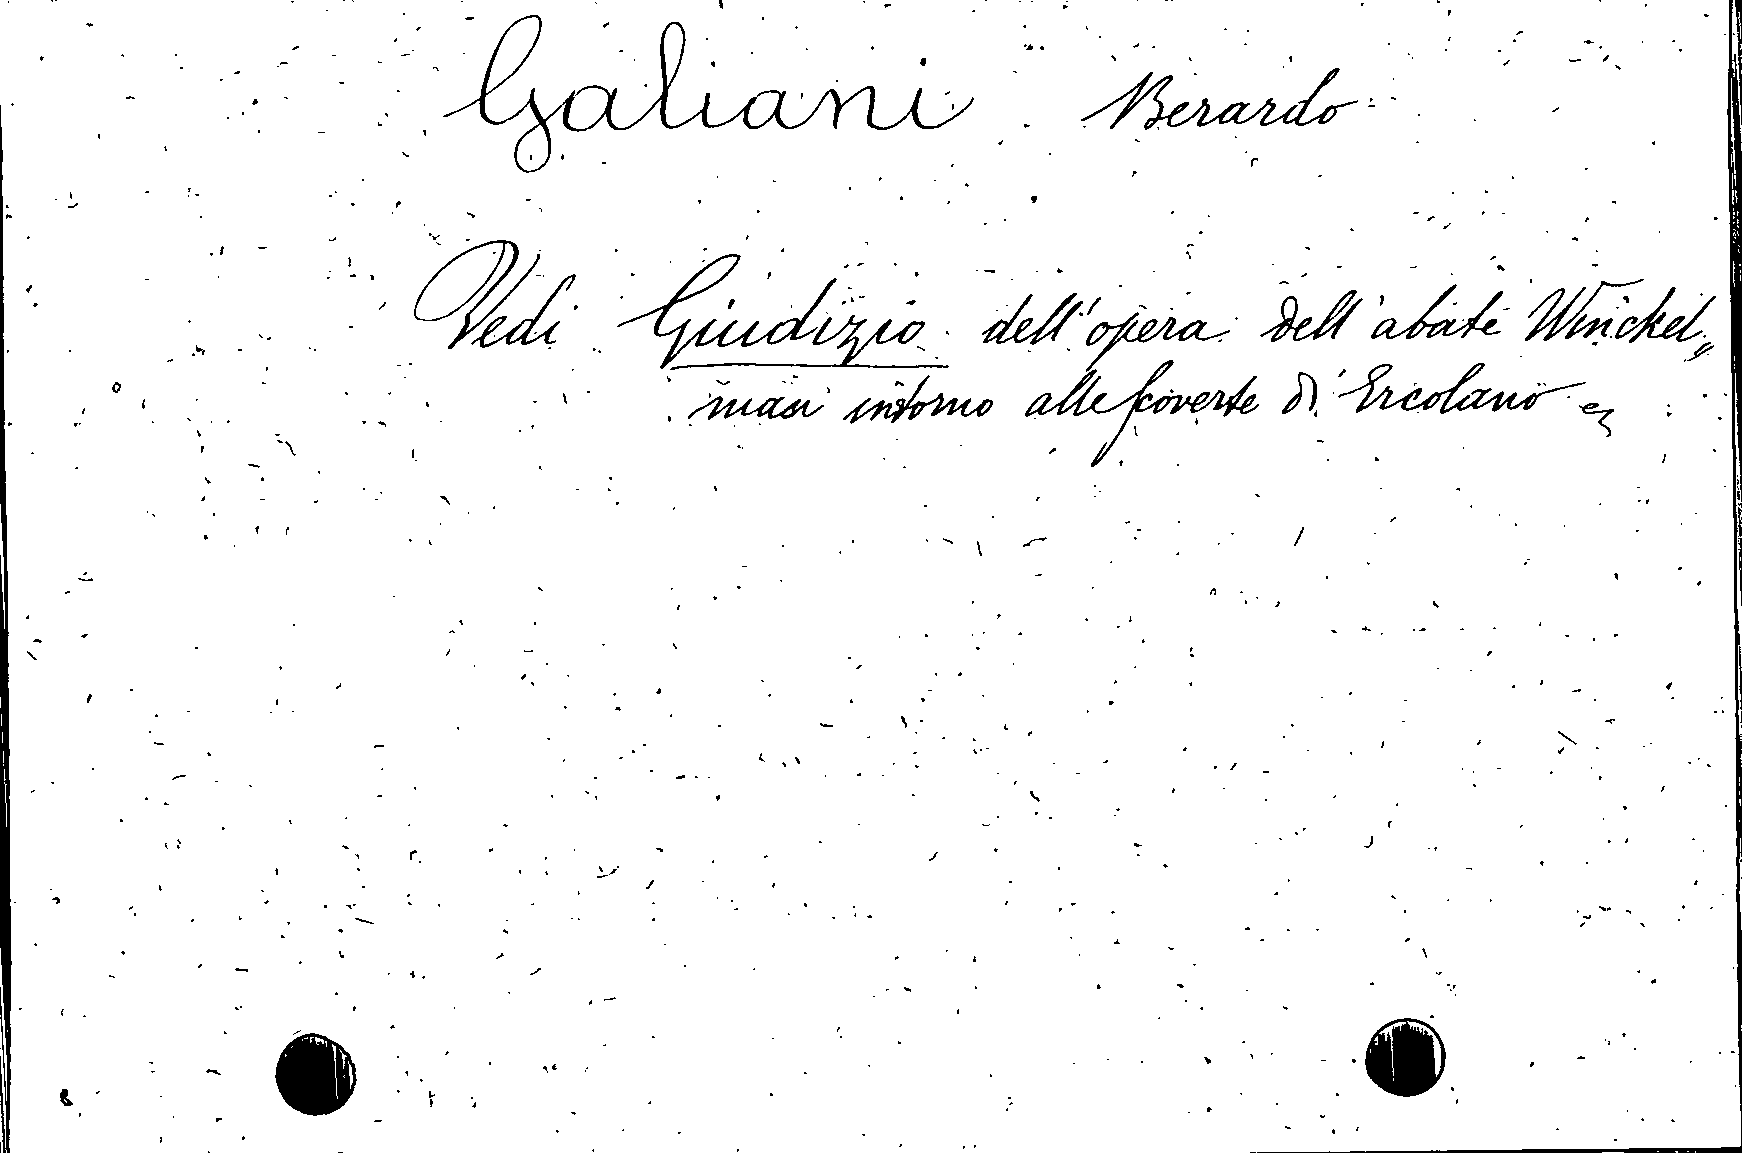 Galiani Berardo
Vedi Giudizio dell'opera dell'abate Winckel„
man intorno alle scoverte di Ercolano